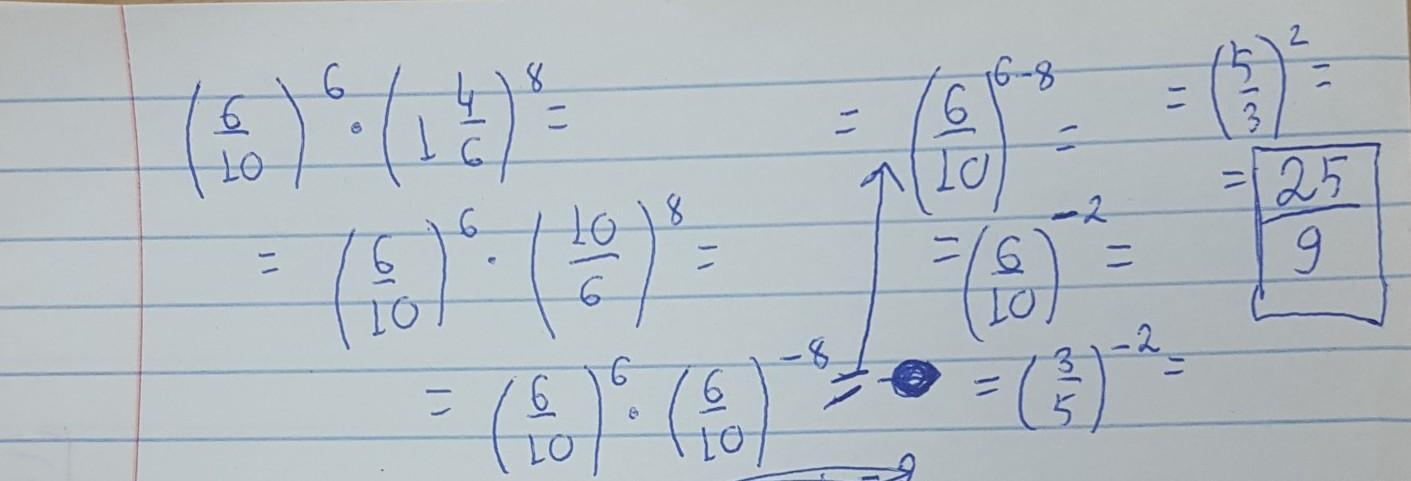 (6/10)^6 · (1 4/6)^8 =
= (6/10)^6 · (10/6)^8 =
= (6/10)^6 · (6/10)^-8 =
= (6/10)^6-8 =
= (6/10)^-2 =
= (3/5)^-2 =
= (5/3)^2 =
= 25/9